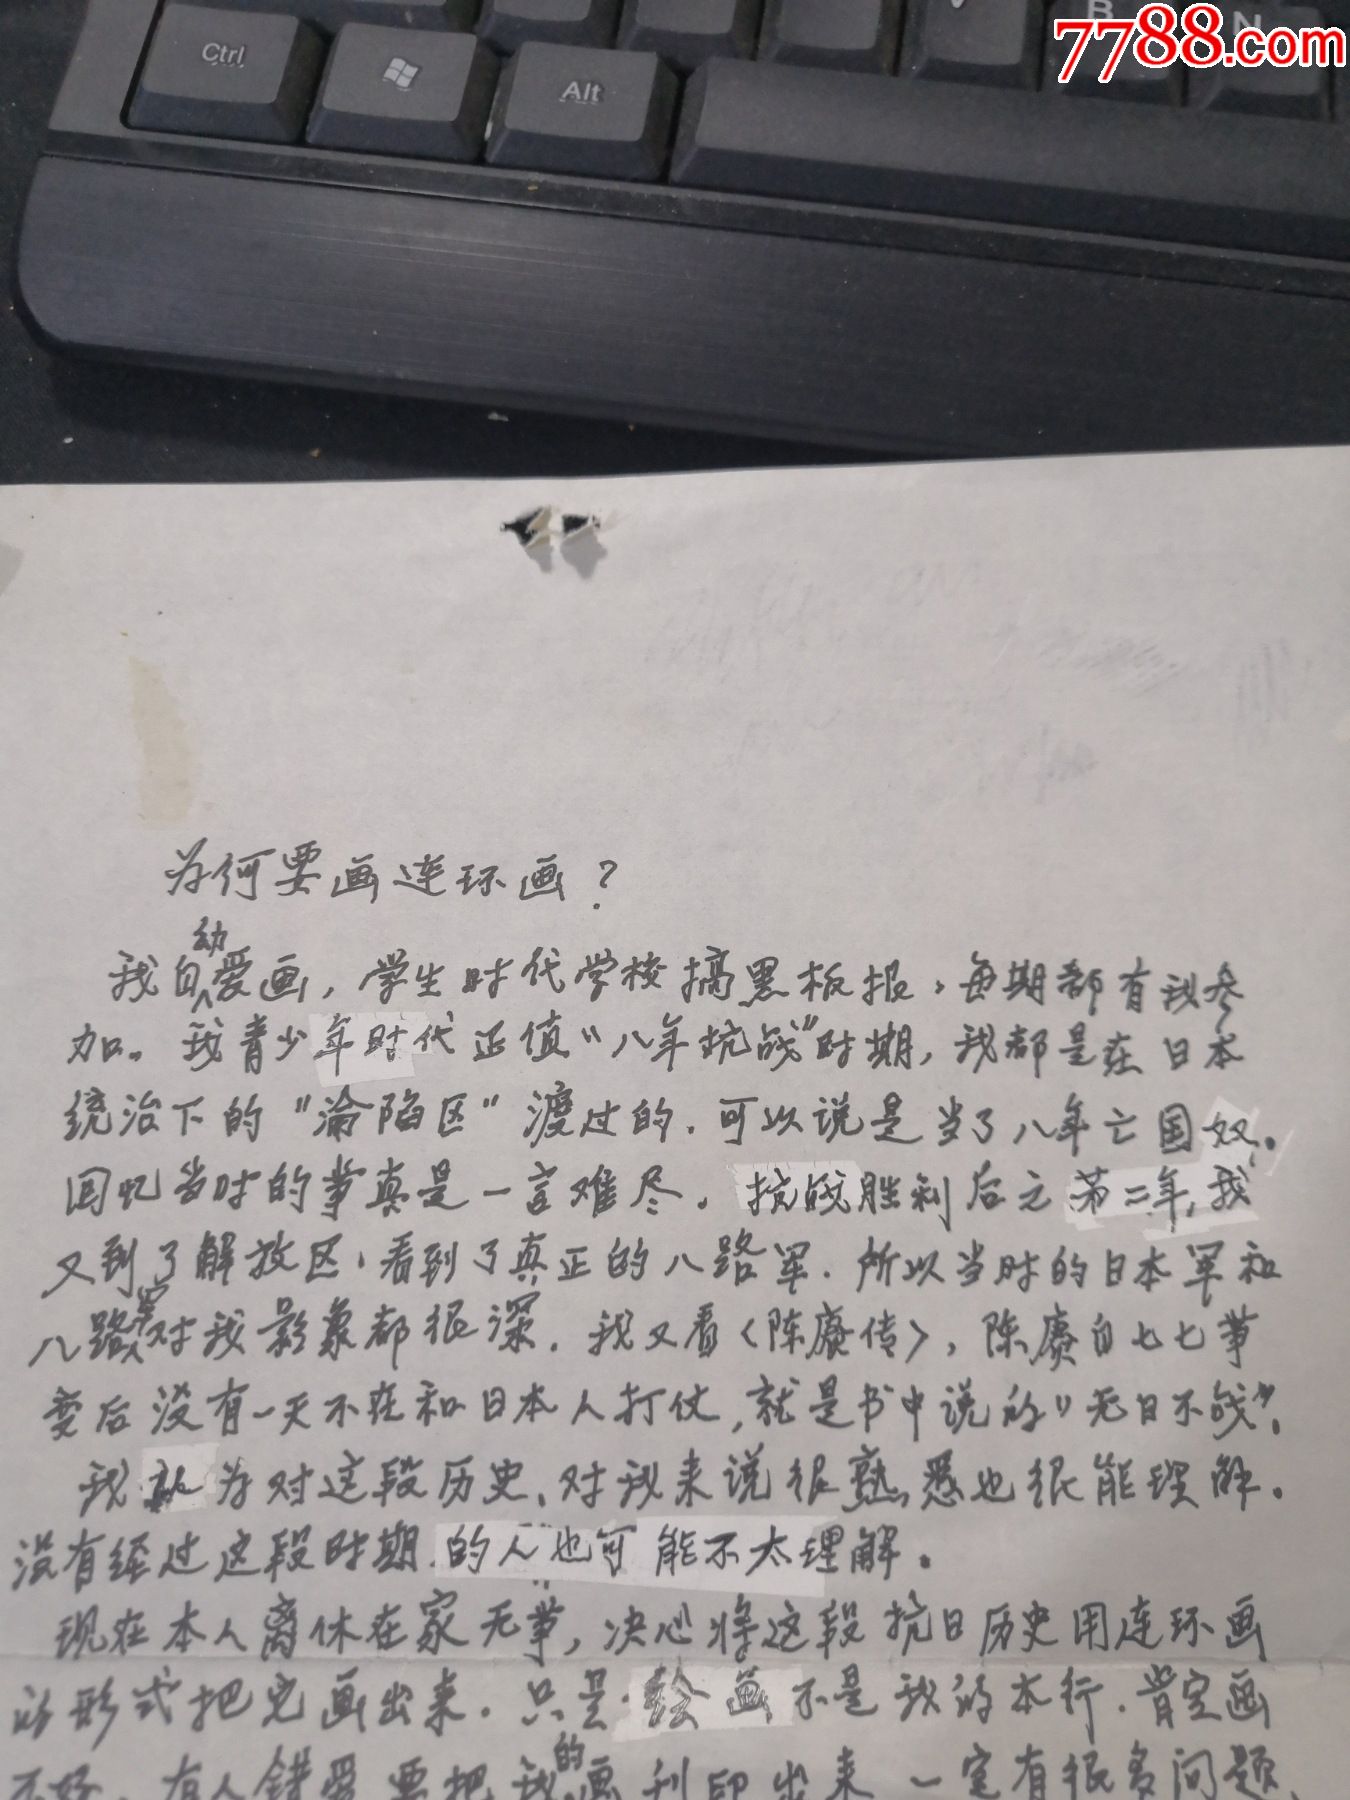 7788.com
Ctrl
Alt
B
N
为何要画连环画?
我自幼爱画,学生时代学校搞黑板报,每期都有我参
加。我青少年时代正值“八年抗战”时期,我都是在日本
统治下的“沦陷区”渡过的.可以说是当了八年亡国奴。
回忆当时的事真是一言难尽。抗战胜利后之第二年,我
又到了解放区,看到了真正的八路军.所以当时的日本军和
八路军对我影象都很深.我又看〈陈赓传〉,陈赓自七七事
变后没有一天不在和日本人打仗,就是书中说的“无日不战”.
我 为对这段历史,对我来说很熟悉也很能理解.
没有经过这段时期的人也可能不太理解。
现在本人离休在家无事,决心将这段抗日历史用连环画
的形式把它画出来.只是绘画不是我的本行.肯定画
不好.有人错爱要把我的画刊印出来 一定有很多问题、